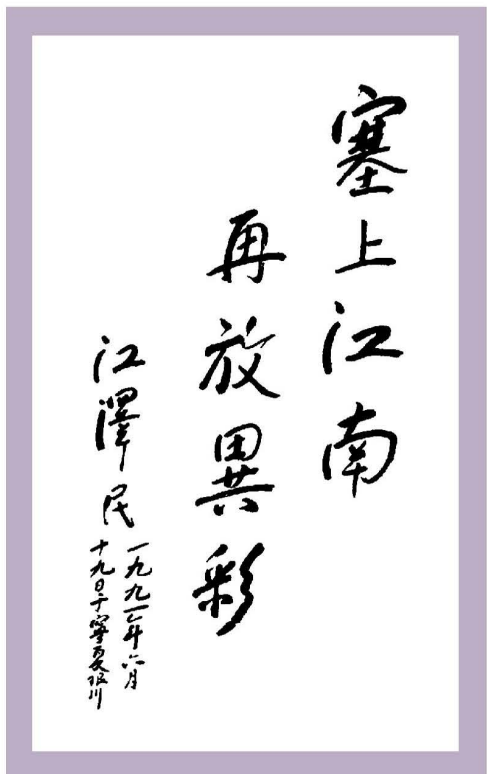 塞上江南
再放異彩
江澤民
一九九一年六月
十九日于寧夏银川